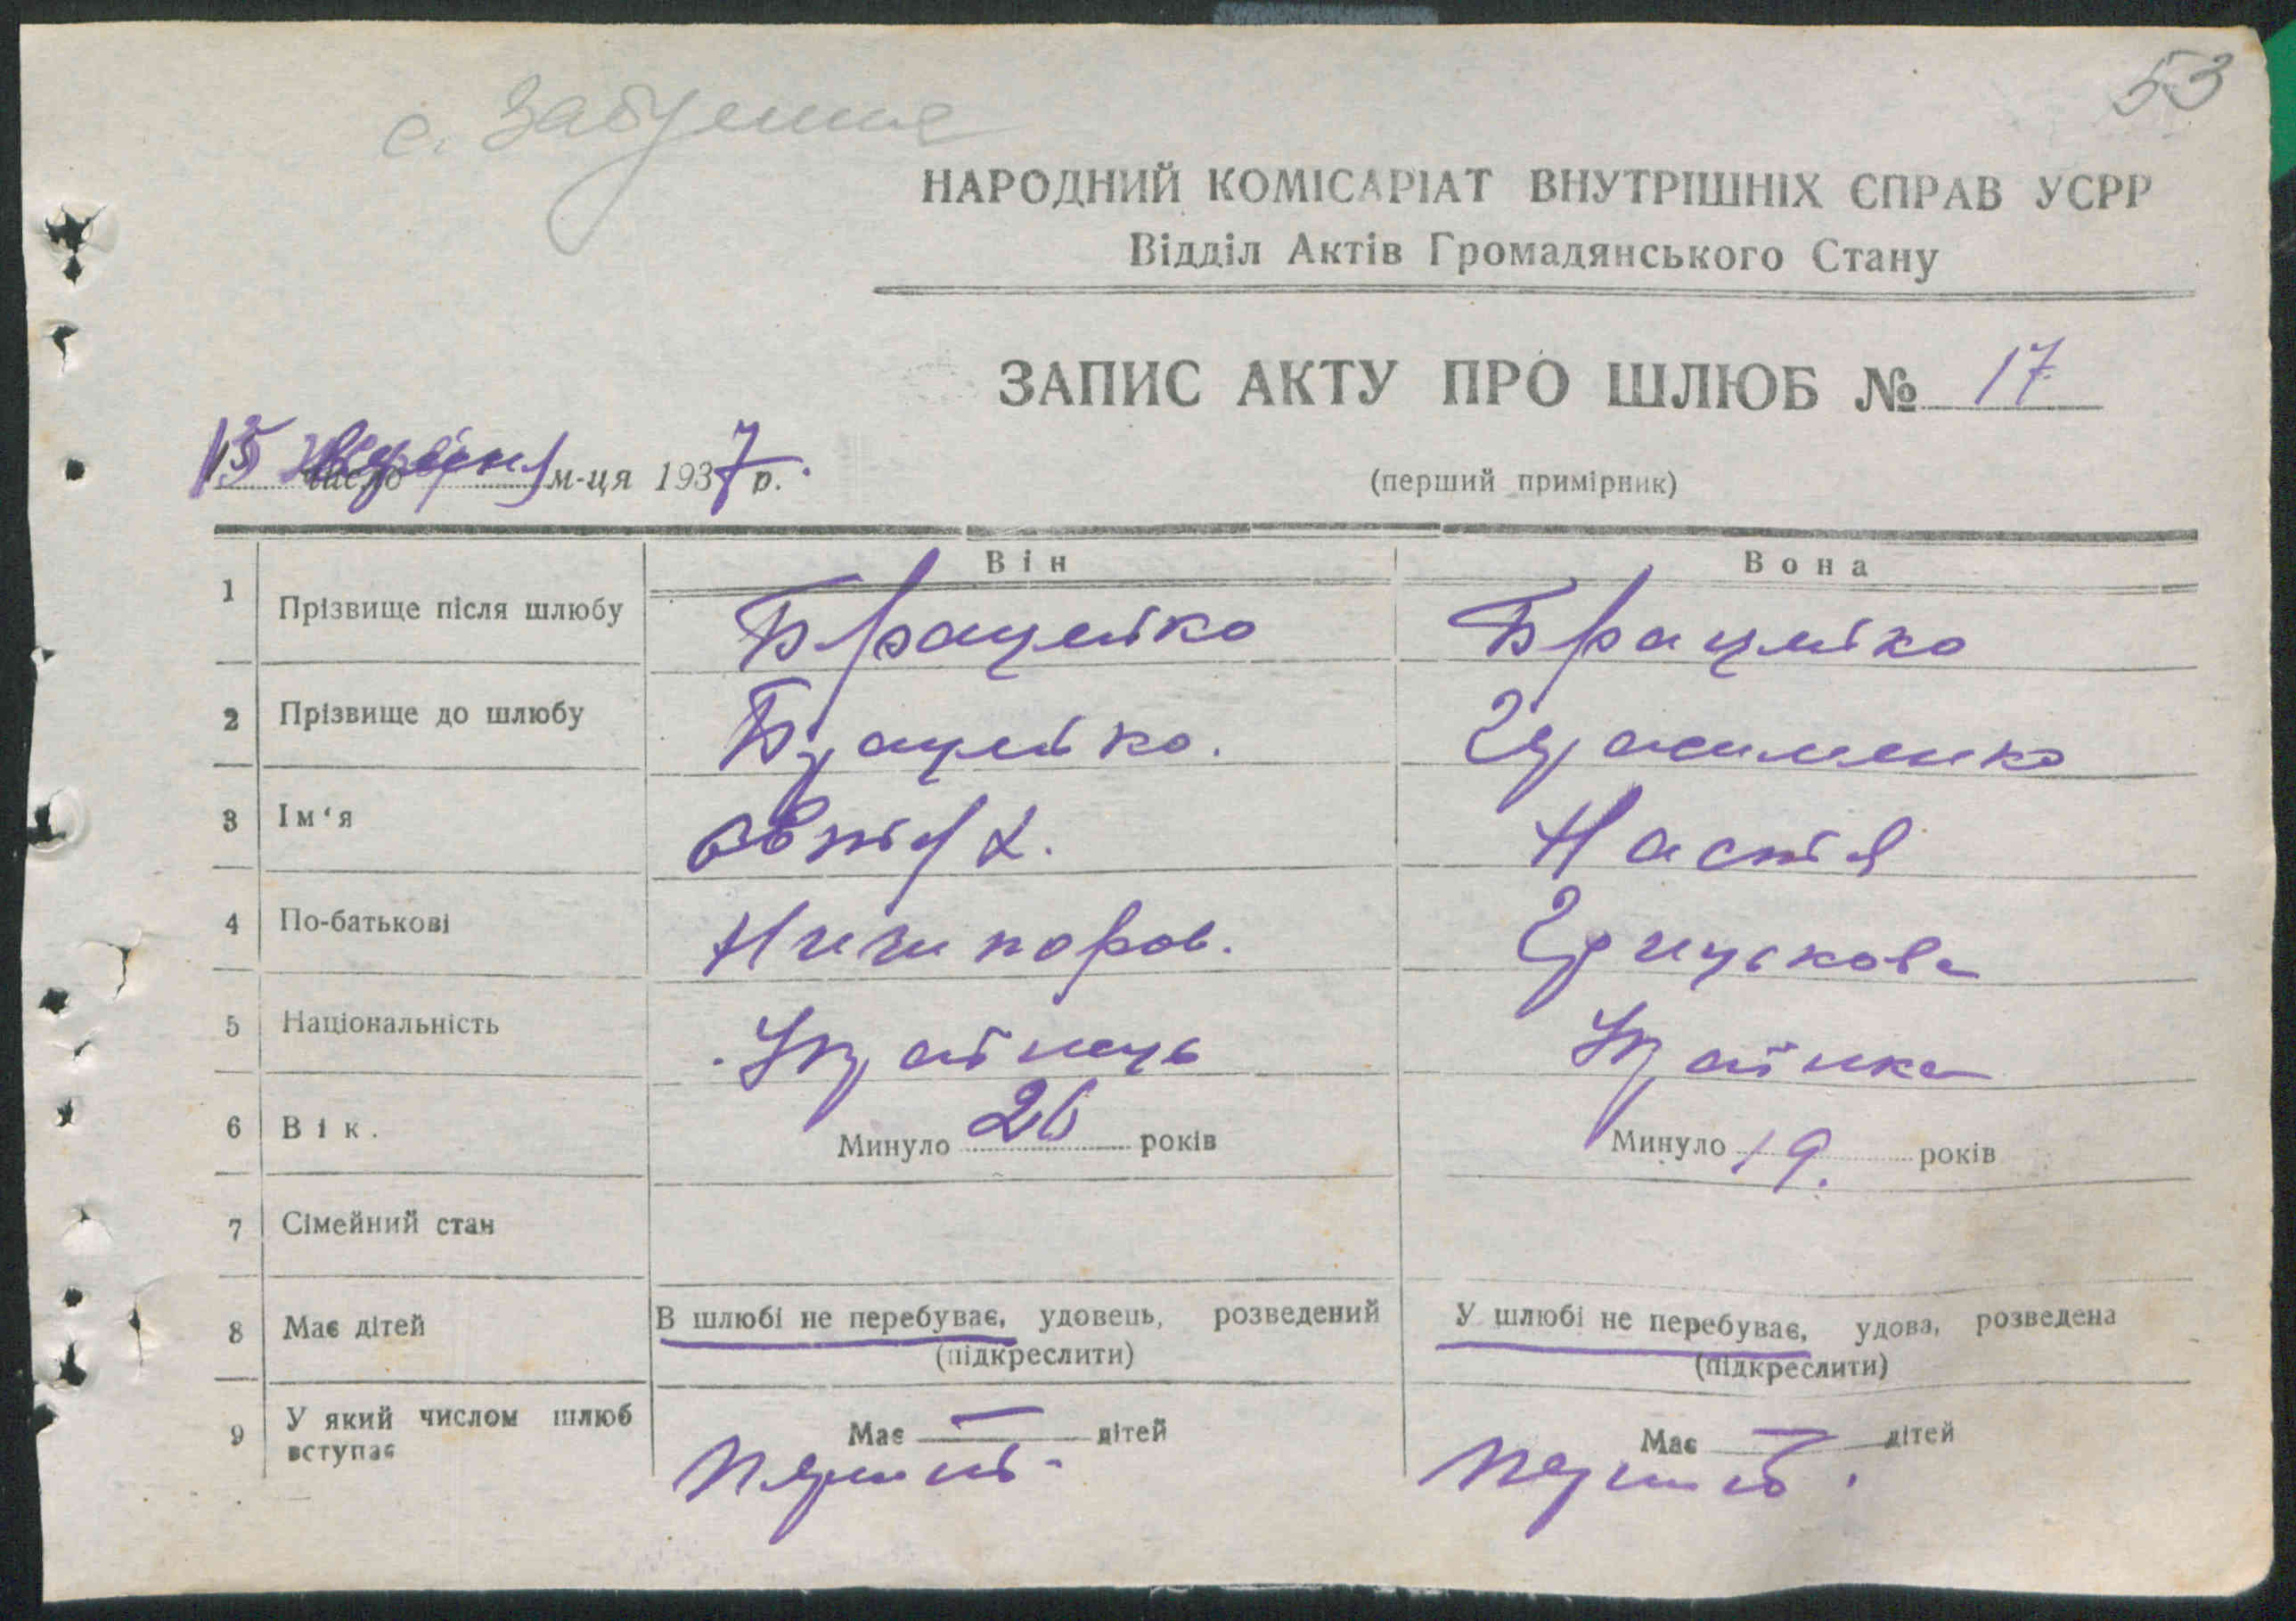 53
с.
НАРОДНИЙ КОМІСАРІАТ ВНУТРІШНІХ СПРАВ УСРР
Відділ Актів Громадянського Стану
ЗАПИС АКТУ ПРО ШЛЮБ № 17
15 число м-ця 1937 р.
(перший примірник)
Він Вона
1 Прізвище після шлюбу Брацейко Брацейко
2 Прізвище до шлюбу Брацейко. Герасименко
3 Ім‘я Настія
4 По-батькові Ничипоров. Грицькова
5 Національність Українець Українка
6 Вік. Минуло 26 років Минуло 19. років
7 Сімейний стан
8 Має дітей В шлюбі не перебуває, удовець, розведений У шлюбі не перебуває, удова, розведена
(підкреслити) (підкреслити)
9 У який числом шлюб вступає Має — дітей Має — дітей